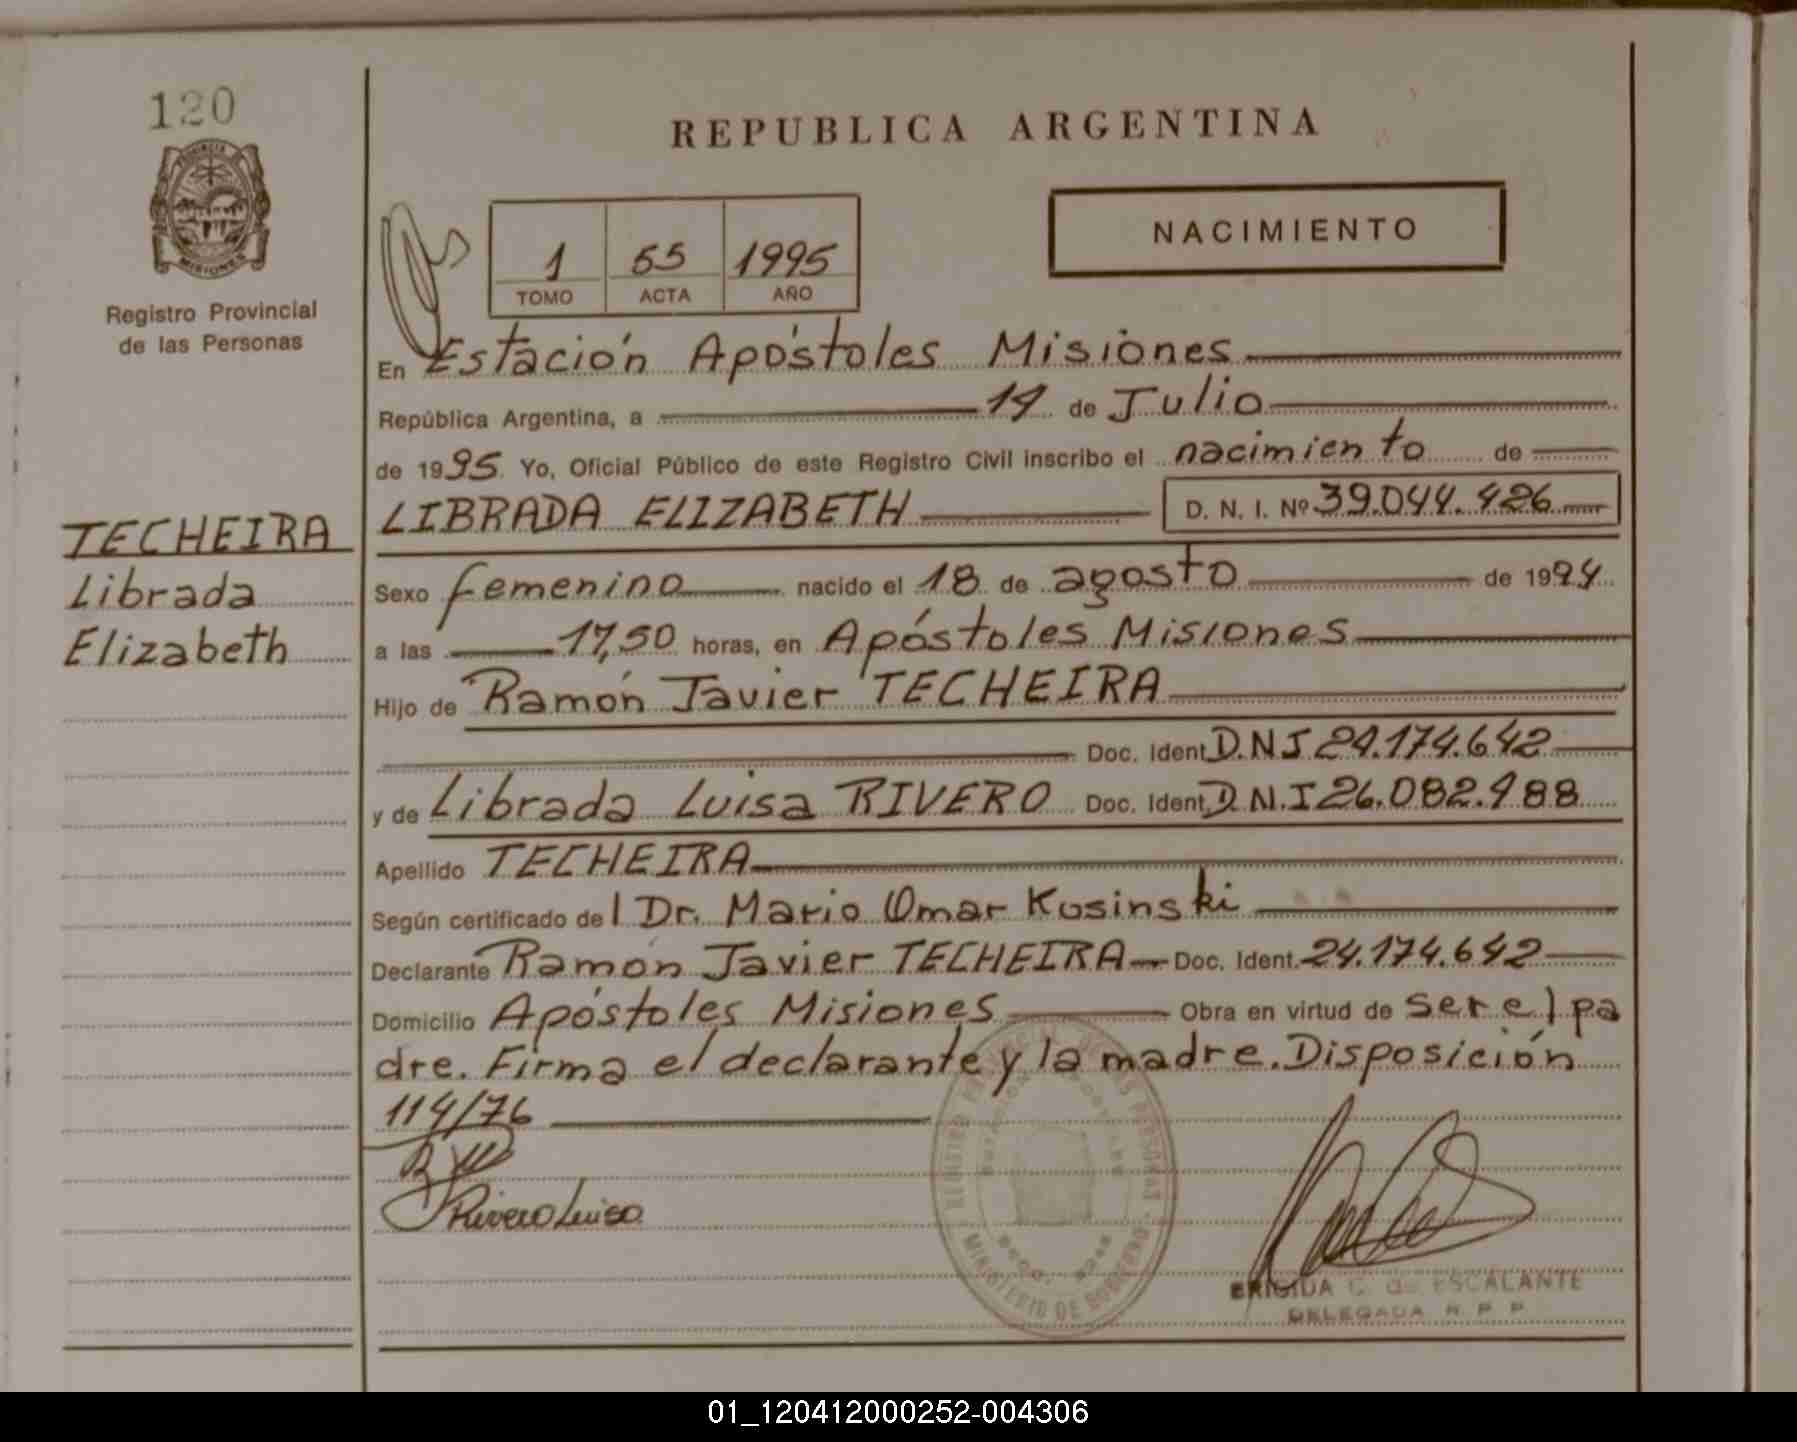 120
PROVINCIA
MISIONES
Registro Provincial
de las Personas
REPUBLICA ARGENTINA
NACIMIENTO
1 55 1995
TOMO ACTA AÑO
En Estación Apóstoles Misiones
República Argentina, a 14 de Julio
de 1995 Yo, Oficial Público de este Registro Civil inscribo el nacimiento de
TECHEIRA
Librada
Elizabeth
LIBRADA ELIZABETH D. N. I. Nº 39.044.426
Sexo femenino nacido el 18 de agosto de 1994
a las 17,50 horas, en Apóstoles Misiones
Hijo de Ramón Javier TECHEIRA
Doc. Ident. D.N.I 24.174.642
y de Librada Luisa RIVERO Doc. Ident. D.N.I 26.082.988
Apellido TECHEIRA
Según certificado del Dr. Mario Omar Kusinski
Declarante Ramón Javier TECHEIRA Doc. Ident. 24.174.642
Domicilio Apóstoles Misiones Obra en virtud de ser el pa
dre. Firma el declarante y la madre. Disposición
114/76
Rivero Luisa
REGISTRO PROVINCIAL DE LAS PERSONAS
MINISTERIO DE GOBIERNO
BRIGIDA C. de ESCALANTE
DELEGADA R. P. P.
01_120412000252-004306